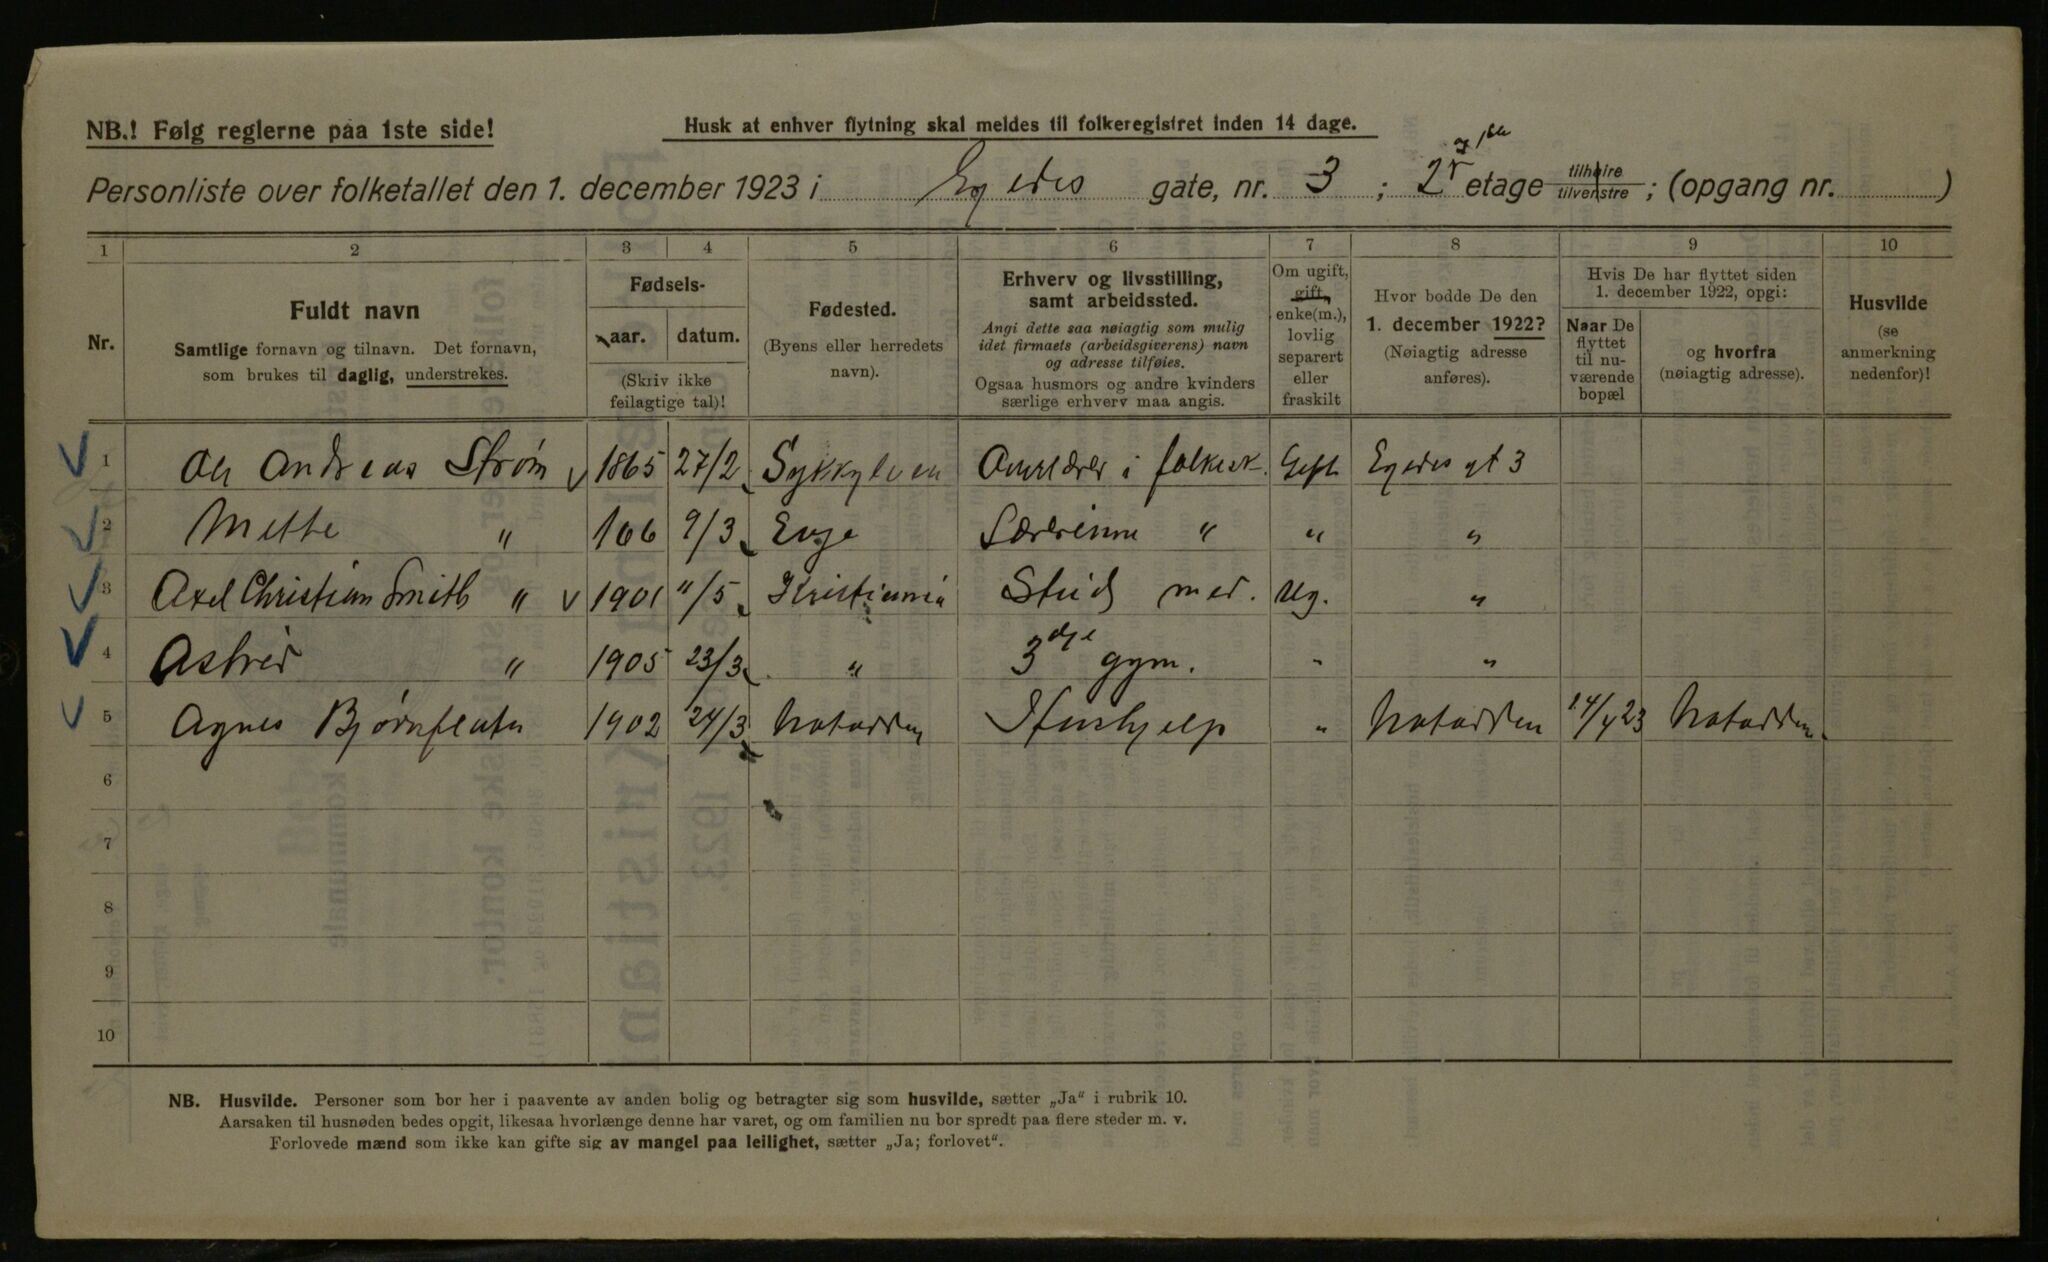 NB.! Følg reglerne paa 1ste side!
Husk at enhver flytning skal meldes til folkeregistret inden 14 dage.
Personliste over folketallet den 1. december 1923 i Egedes gate, nr. 3 ; 2 etage tilhøire tilvenstre ; (opgang nr. )
1 2 3 4 5 6 7 8 9 10
Nr.
Fuldt navn
Samtlige fornavn og tilnavn. Det fornavn,
som brukes til daglig, understrekes.
Fødsels-
aar. datum.
(Skriv ikke
feilagtige tal)!
Fødested.
(Byens eller herredets
navn).
Erhverv og livsstilling,
samt arbeidssted.
Angi dette saa nøiagtig som mulig
idet firmaets (arbeidsgiverens) navn
og adresse tilføies.
Ogsaa husmors og andre kvinders
særlige erhverv maa angis.
Om ugift,
gift,
enke(m.),
lovlig
separert
eller
fraskilt
Hvor bodde De den
1. december 1922?
(Nøiagtig adresse
anføres).
Hvis De har flyttet siden
1. december 1922, opgi:
Naar De
flyttet
til nu-
værende
bopæl
og hvorfra
(nøiagtig adresse).
Husvilde
(se
anmerkning
nedenfor)!
1 Andreas Strøm 1865 27/2 Sykkylven i folkesk. Gift Egedes gt 3
2 Mette " 9/3 Evje Lærerinne " " "
3 Axel Christian Smith " 1901 11/5 Kristiania Stud med. Ug. "
4 Astrid " 1905 23/3 " 3dje gym. " "
5 Agnes 1902 24/3 Notodden Hushjelp " Notodden 23 Notodden
6
7
8
9
10
NB. Husvilde. Personer som bor her i paavente av anden bolig og betragter sig som husvilde, sætter „Ja“ i rubrik 10.
Aarsaken til husnøden bedes opgit, likesaa hvorlænge denne har varet, og om familien nu bor spredt paa flere steder m. v.
Forlovede mænd som ikke kan gifte sig av mangel paa leilighet, sætter „Ja; forlovet“.